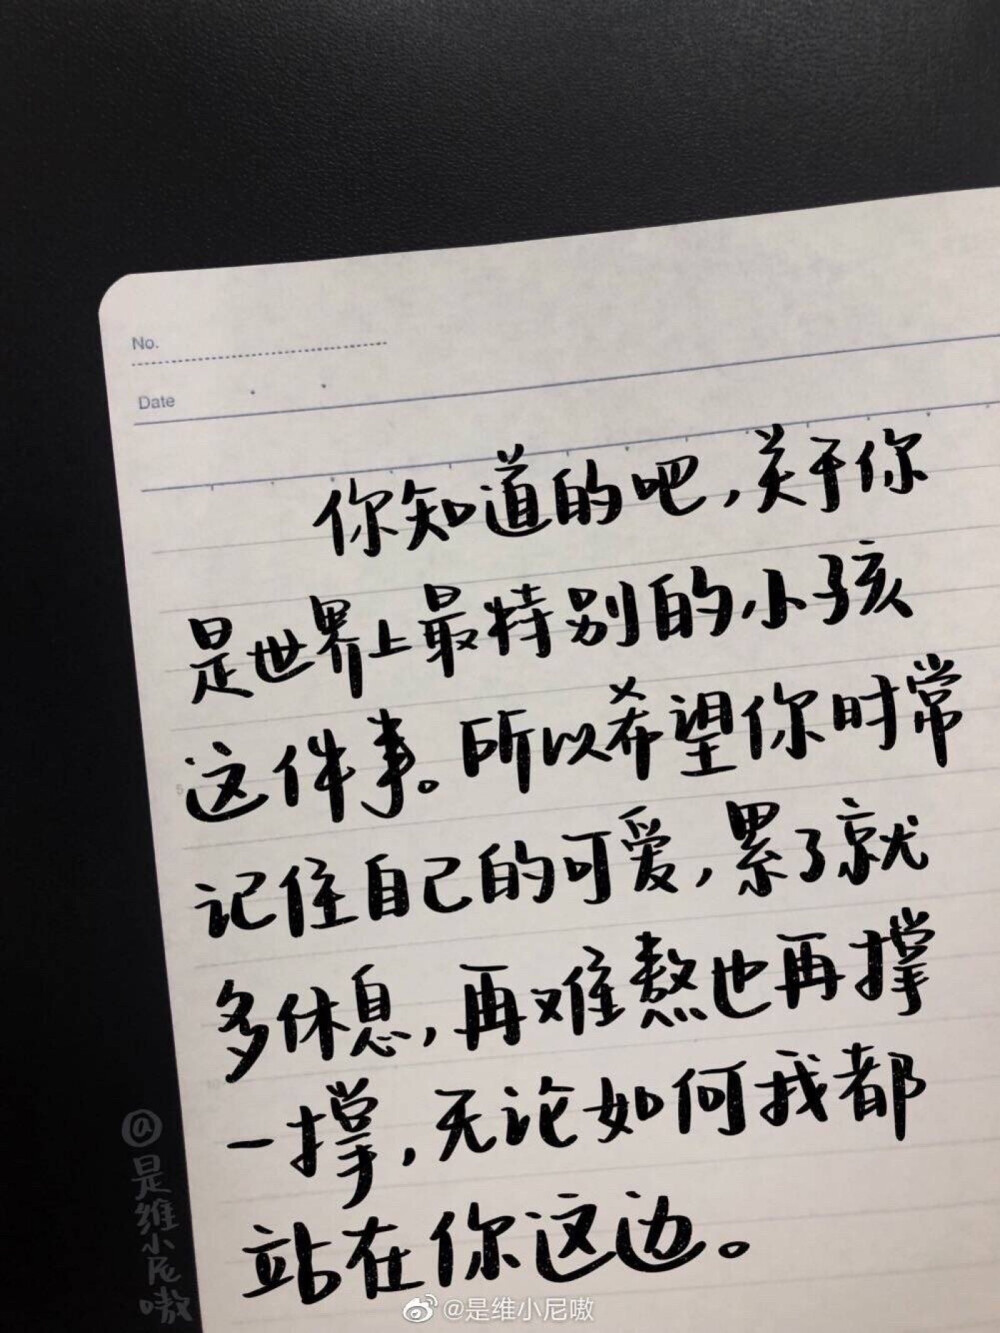 No.
Date
你知道的吧,关于你
是世界上最特别的小孩
这件事。所以希望你时常
记住自己的可爱,累了就
多休息,再难熬也再撑
一撑,无论如何我都
站在你这边。
@是维小尼嗷
@是维小尼嗷